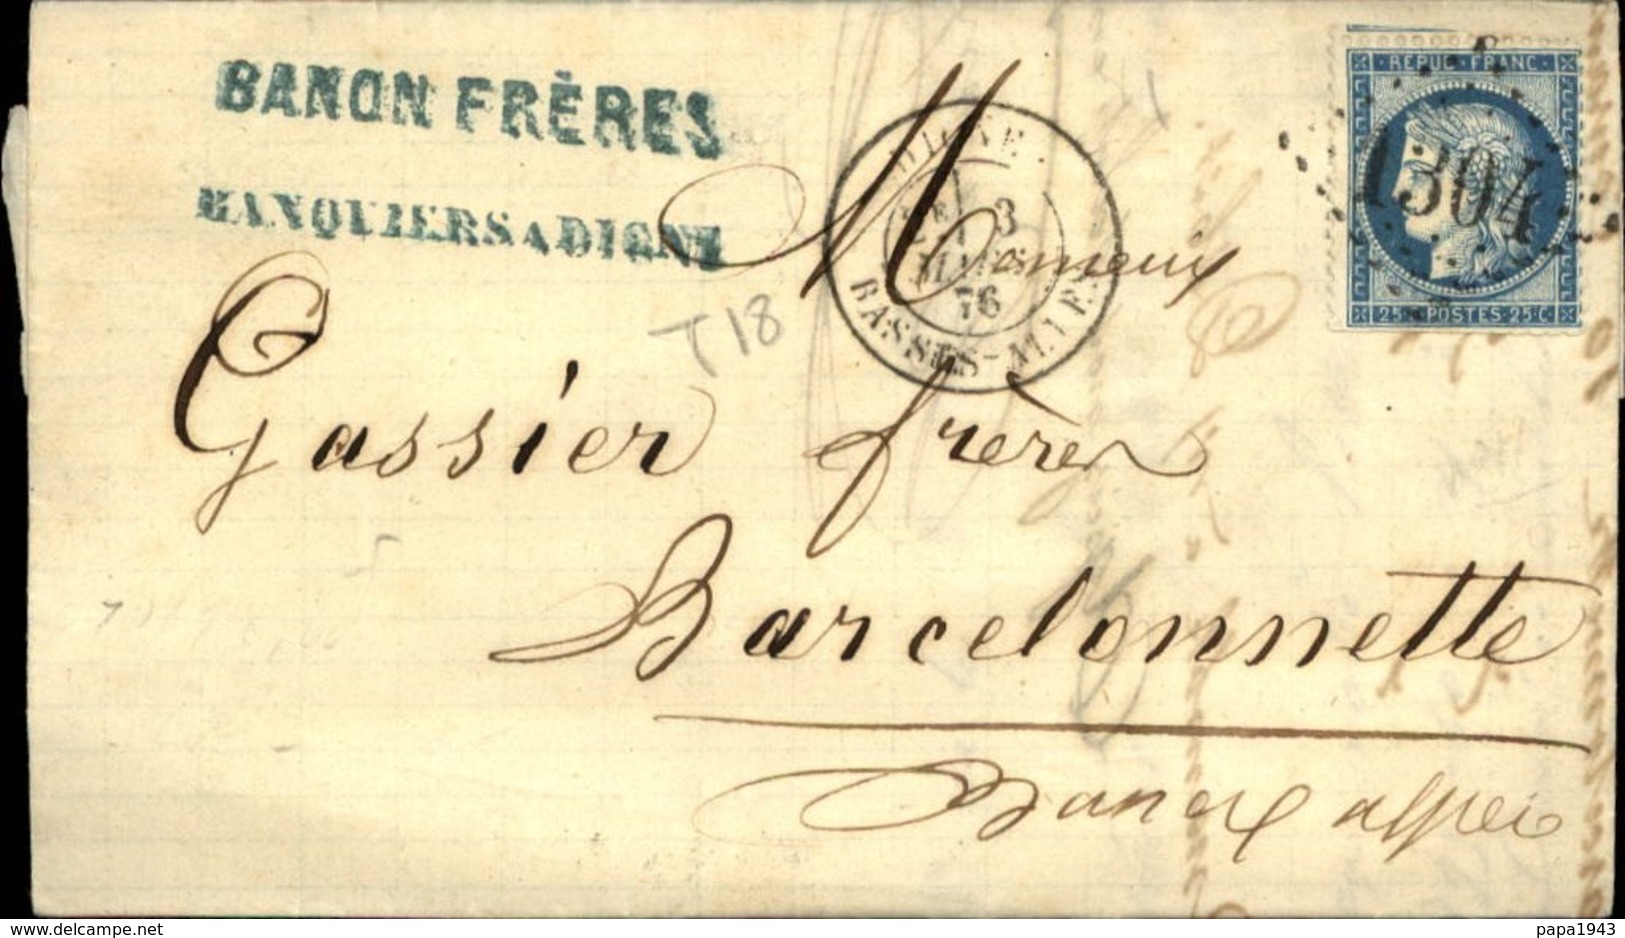 BANON FRÈRES
BANQUIERS A DIGNE
REPUB · FRANC ·
1304
25 POSTES 25 C
DIGNE
1E
3
MARS
76
BASSES-ALPES
Messieurs
T18
Gassier frères
Barcelonnette
Basses alpes
delcampe.net
papa1943